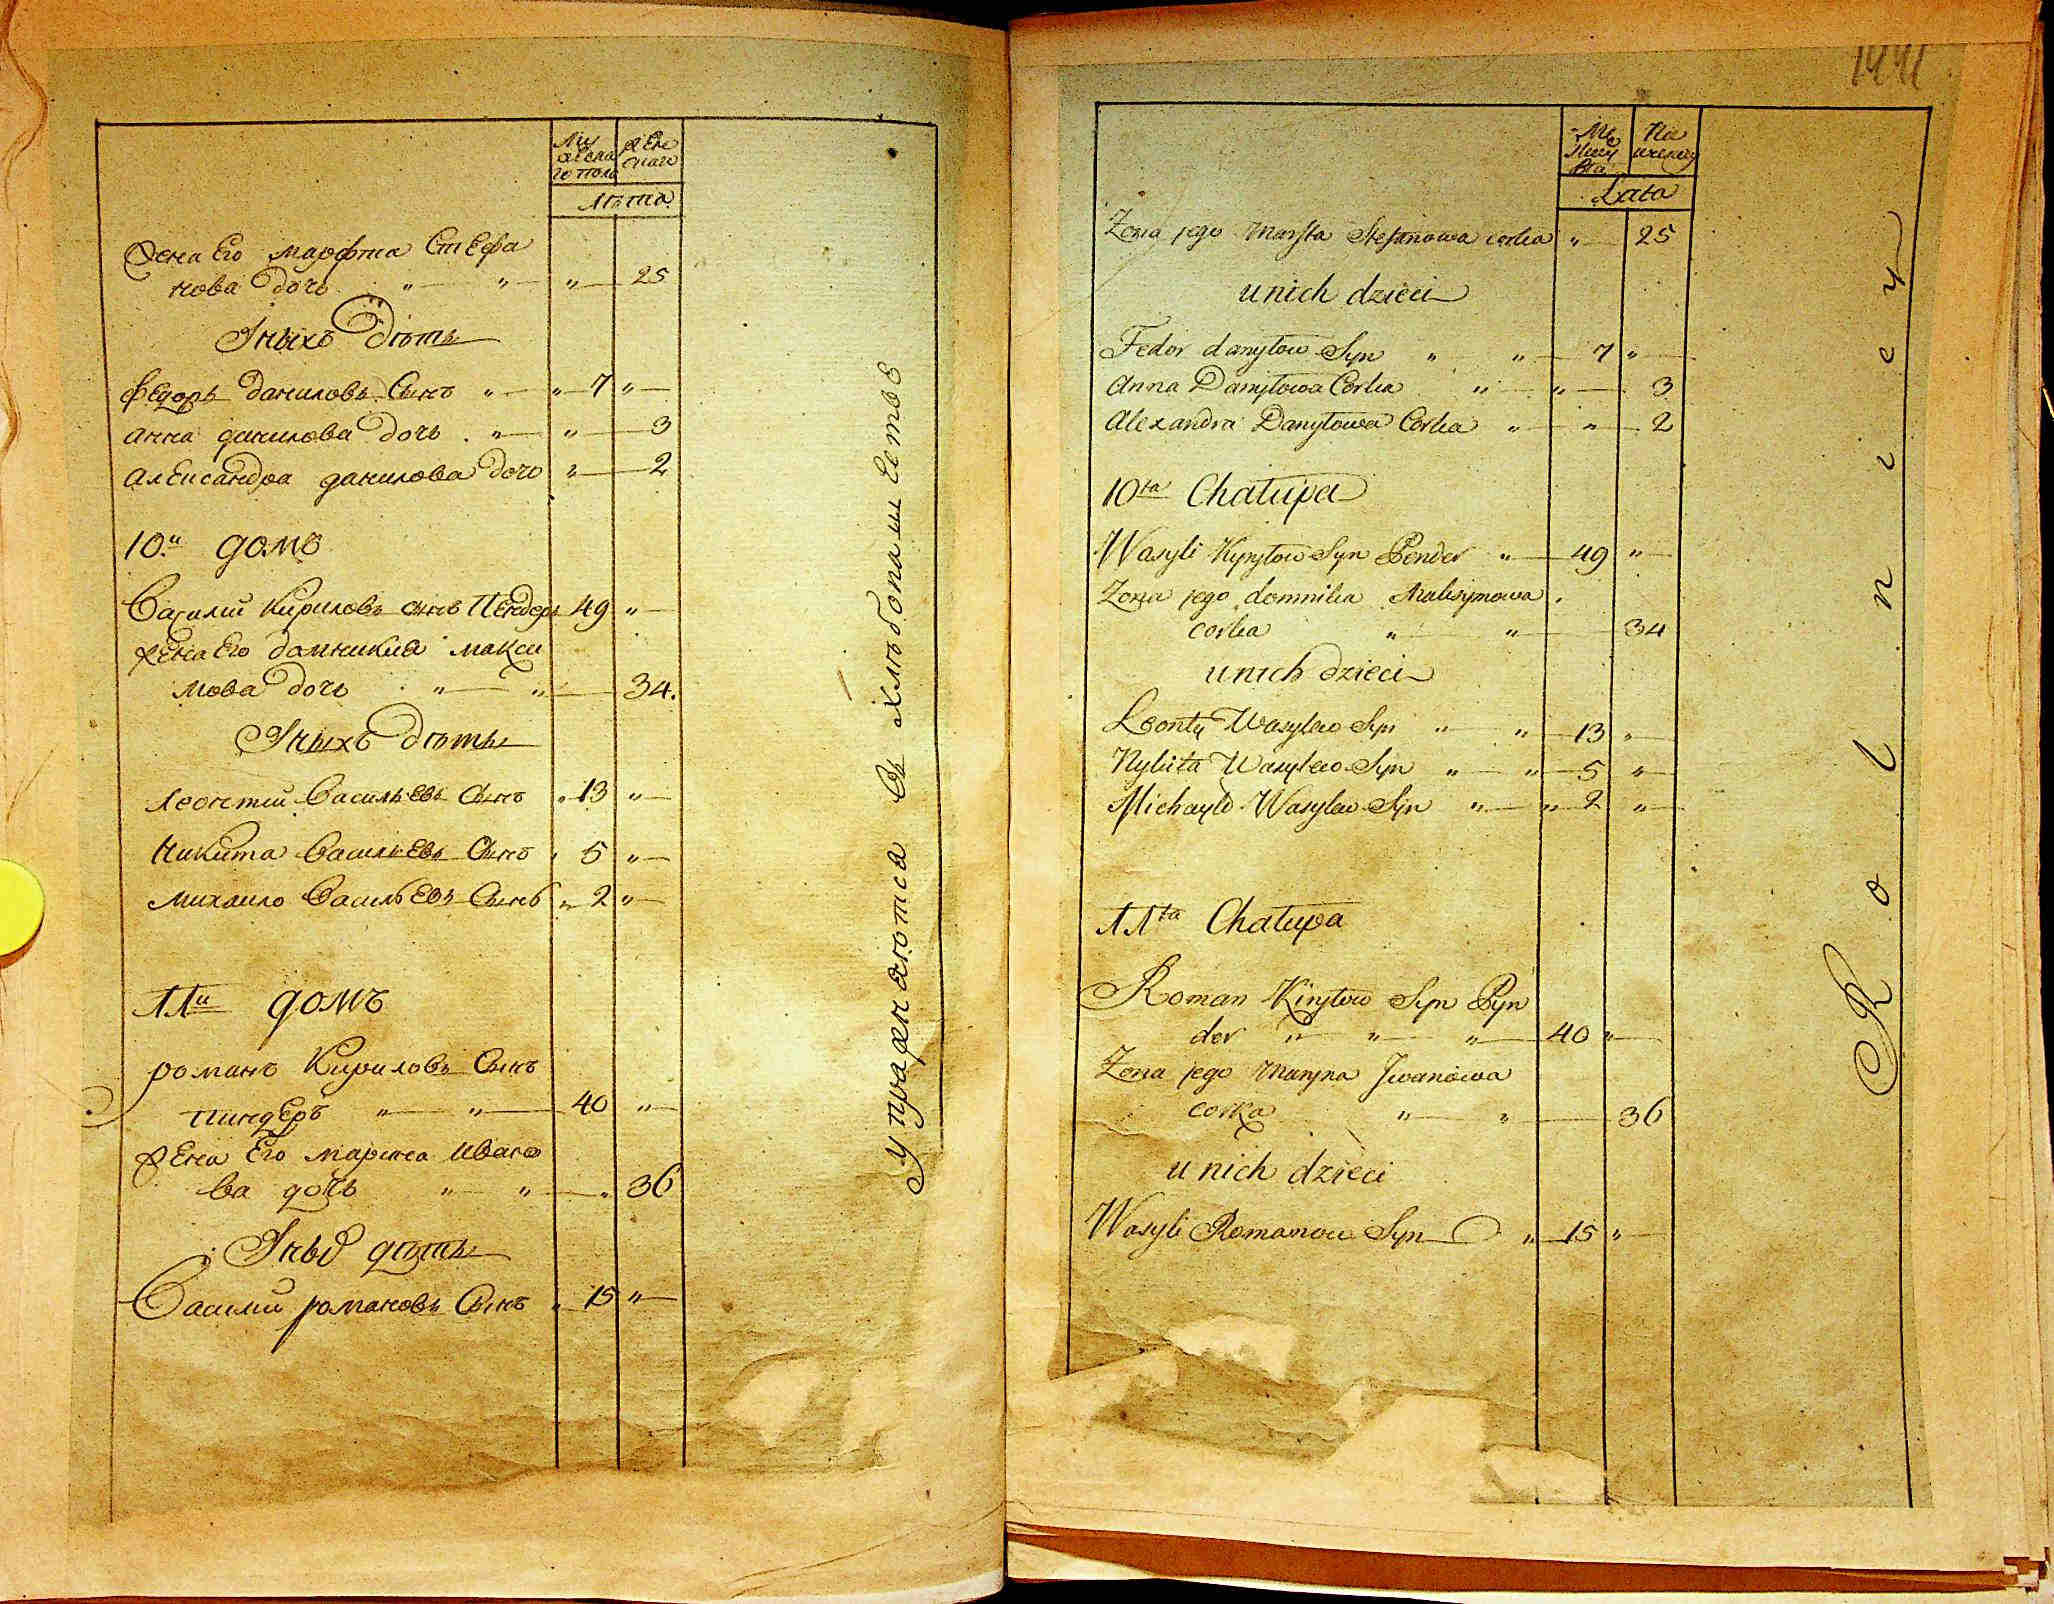 Му
жеска
го пола
Жен
скаго
лѣта
Жена Его марфта Стефа
нова дочь " " " 25
Уныхъ дѣти
Федоръ даниловъ Сынъ " " 7 "
анна данилова дочь " " 3
александра данилова дочь " 2
10.й домъ
Василий Кириловъ сынъ Пендеръ 49 "
Жена Его домникия макси
мова дочь " " 34.
Уныхъ дѣти
Леонтий Васильевъ Сынъ " 13 "
Никита Васильевъ Сынъ " 5 "
михаило Васильевъ Сынъ " 2 "
11й домъ
романъ Кириловъ Сынъ
пиндеръ " " 40 "
Жена Его марина Ивано
ва дочь " " " 36
Уныхъ дѣти
Василий романовъ Сынъ " 15 "
Упражняются Въ хлѣбопашестве
Lata
Zona jego Marfta Stefanowa corka " 25
u nich dzieci
Fedor danyłow Syn " " 7 "
Anna Danyłowa Corka " " 3
Alexandra Danyłowa Corka " " 2
10ta Chałupa
Wasyli Kyryłow Syn Pender " 49 "
Zona jego domnikia Maksymowa
corka " " 34
u nich dzieci
Leonty Wasylew Syn " " 13 "
Nykita Wasylew Syn " " 5 "
Michayło Wasylew Syn " " 2 "
11ta Chałupa
Roman Kiryłow Syn Pyn
der " " " 40 "
Zona jego Maryna Jwanowa
corka " " 36
u nich dzieci
Wasyli Romanow Syn " 15 "
Rolnicy